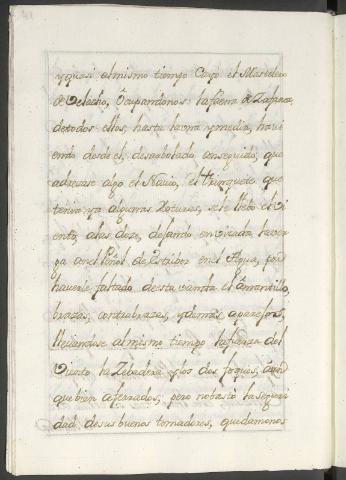 y quasi al mismo tiempo Cayo el Mastelero
de Velacho, Ocupandonos la faena de Zafarnos
de todos ellos, hasta la una y media, havi
endo desde el desarbolado conseguido, que
adrezase algo el Navio, el trinquete que
tenia ya algunas Roturas, se le llebo el Vi
ento, a las doze, dejando en vixada la ver
ga con el Peñol de Estribor en el Agua, por
haverle faltado de esta vanda el Amantillo,
brazas, contrabrazas, y demas aparejos,
llevandose al mismo tiempo la fuerza del
Viento la Zebadera y los dos foques, aun
que bien aferrados, pero no bastó la segurí
dad de sus buenos tomadores, quedamonos